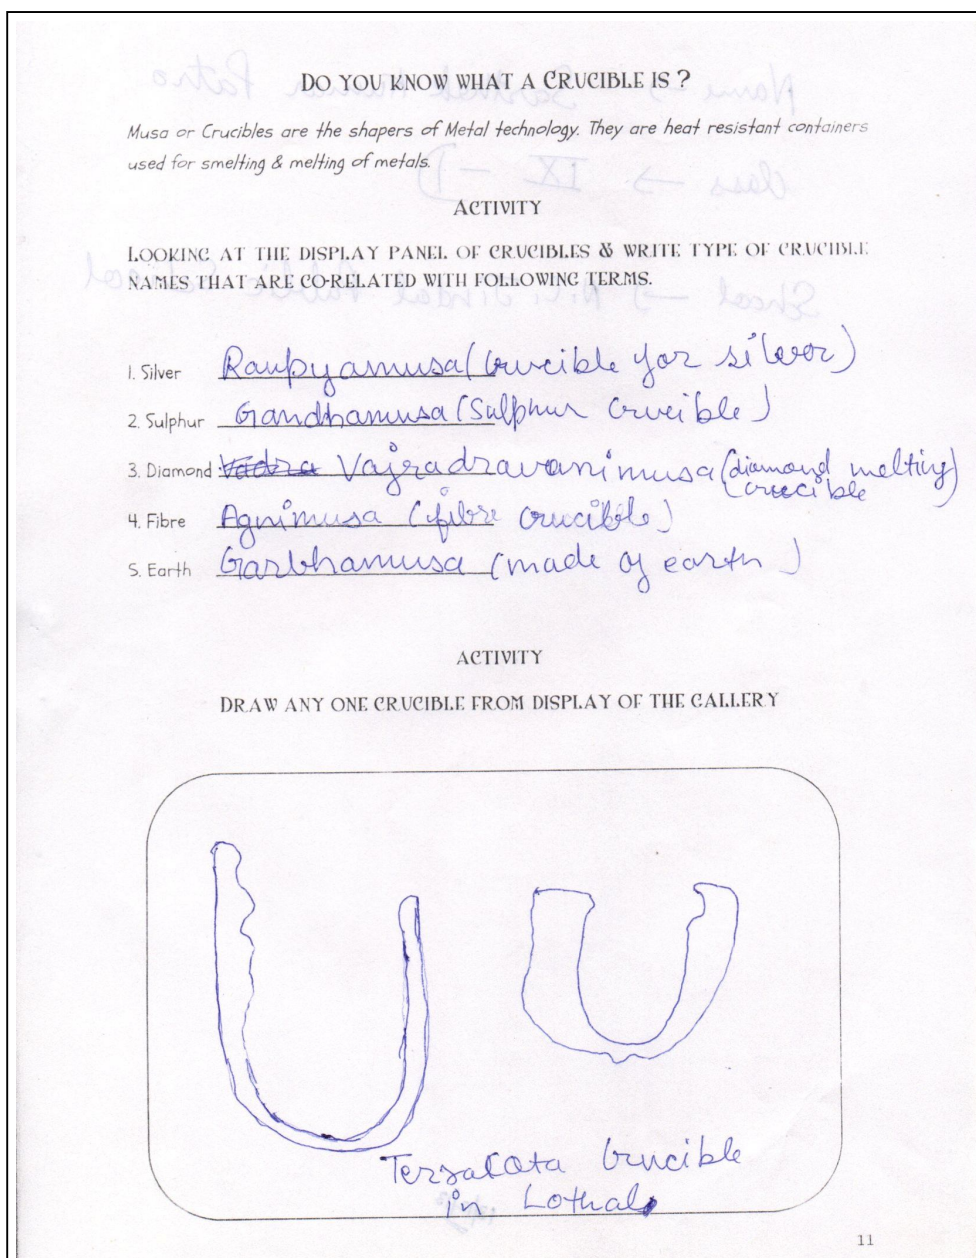 DO YOU KNOW WHAT A CRUCIBLE IS ?
Musa or Crucibles are the shapers of Metal technology. They are heat resistant containers
used for smelting & melting of metals.
ACTIVITY
LOOKING AT THE DISPLAY PANEL OF CRUCIBLES & WRITE TYPE OF CRUCIBLE
NAMES THAT ARE CO-RELATED WITH FOLLOWING TERMS.
1. Silver Raupyamusa (Crucible for silver)
2. Sulphur Gandhamusa (Sulphur Crucible)
3. Diamond Vajradravanimusa (diamond melting)
crucible
4. Fibre Agnimusa (fibre crucible)
5. Earth Garbhamusa (made of earth)
ACTIVITY
DRAW ANY ONE CRUCIBLE FROM DISPLAY OF THE GALLERY
Terracota Crucible
in Lothal
11